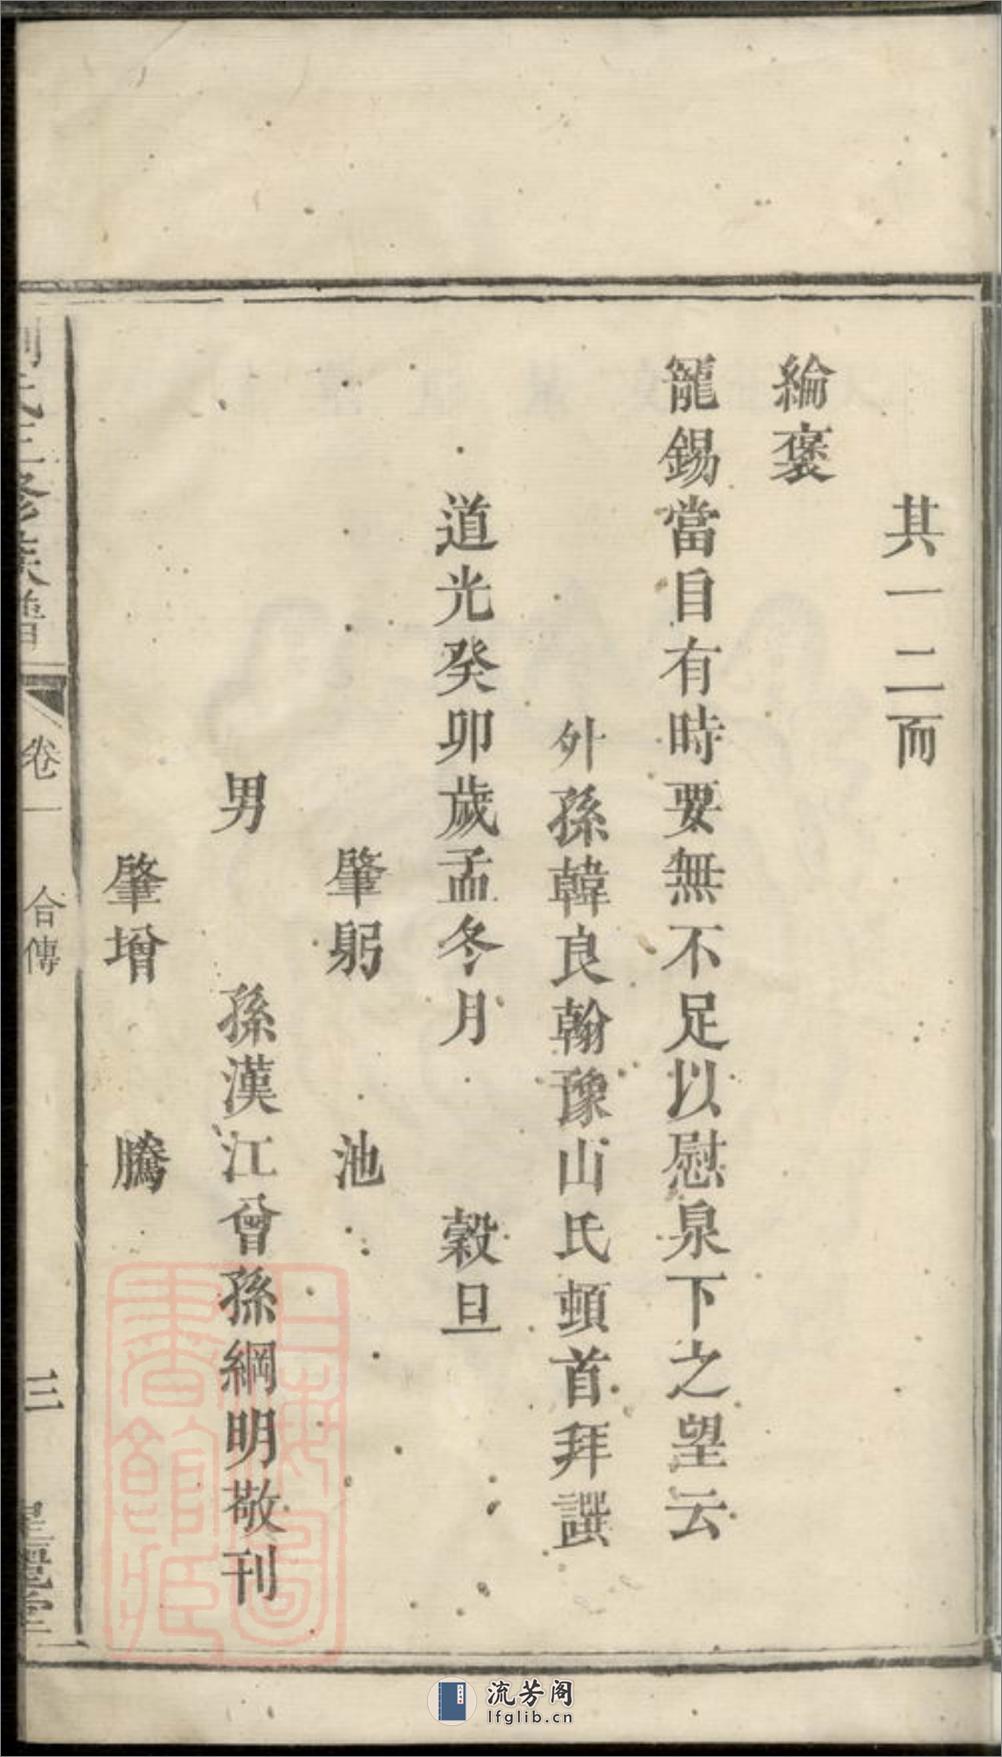 其一二而
綸褒
寵錫當自有時要無不足以慰泉下之望云
外孫韓良翰豫山氏頓首拜譔
道光癸卯歲孟冬月　穀旦
肇躬　池
男　孫漢江曾孫綱明敬刊
肇增　騰
氏三修族譜
卷一　合傳
三
上海圖書館藏
流芳阁
lfglib.cn